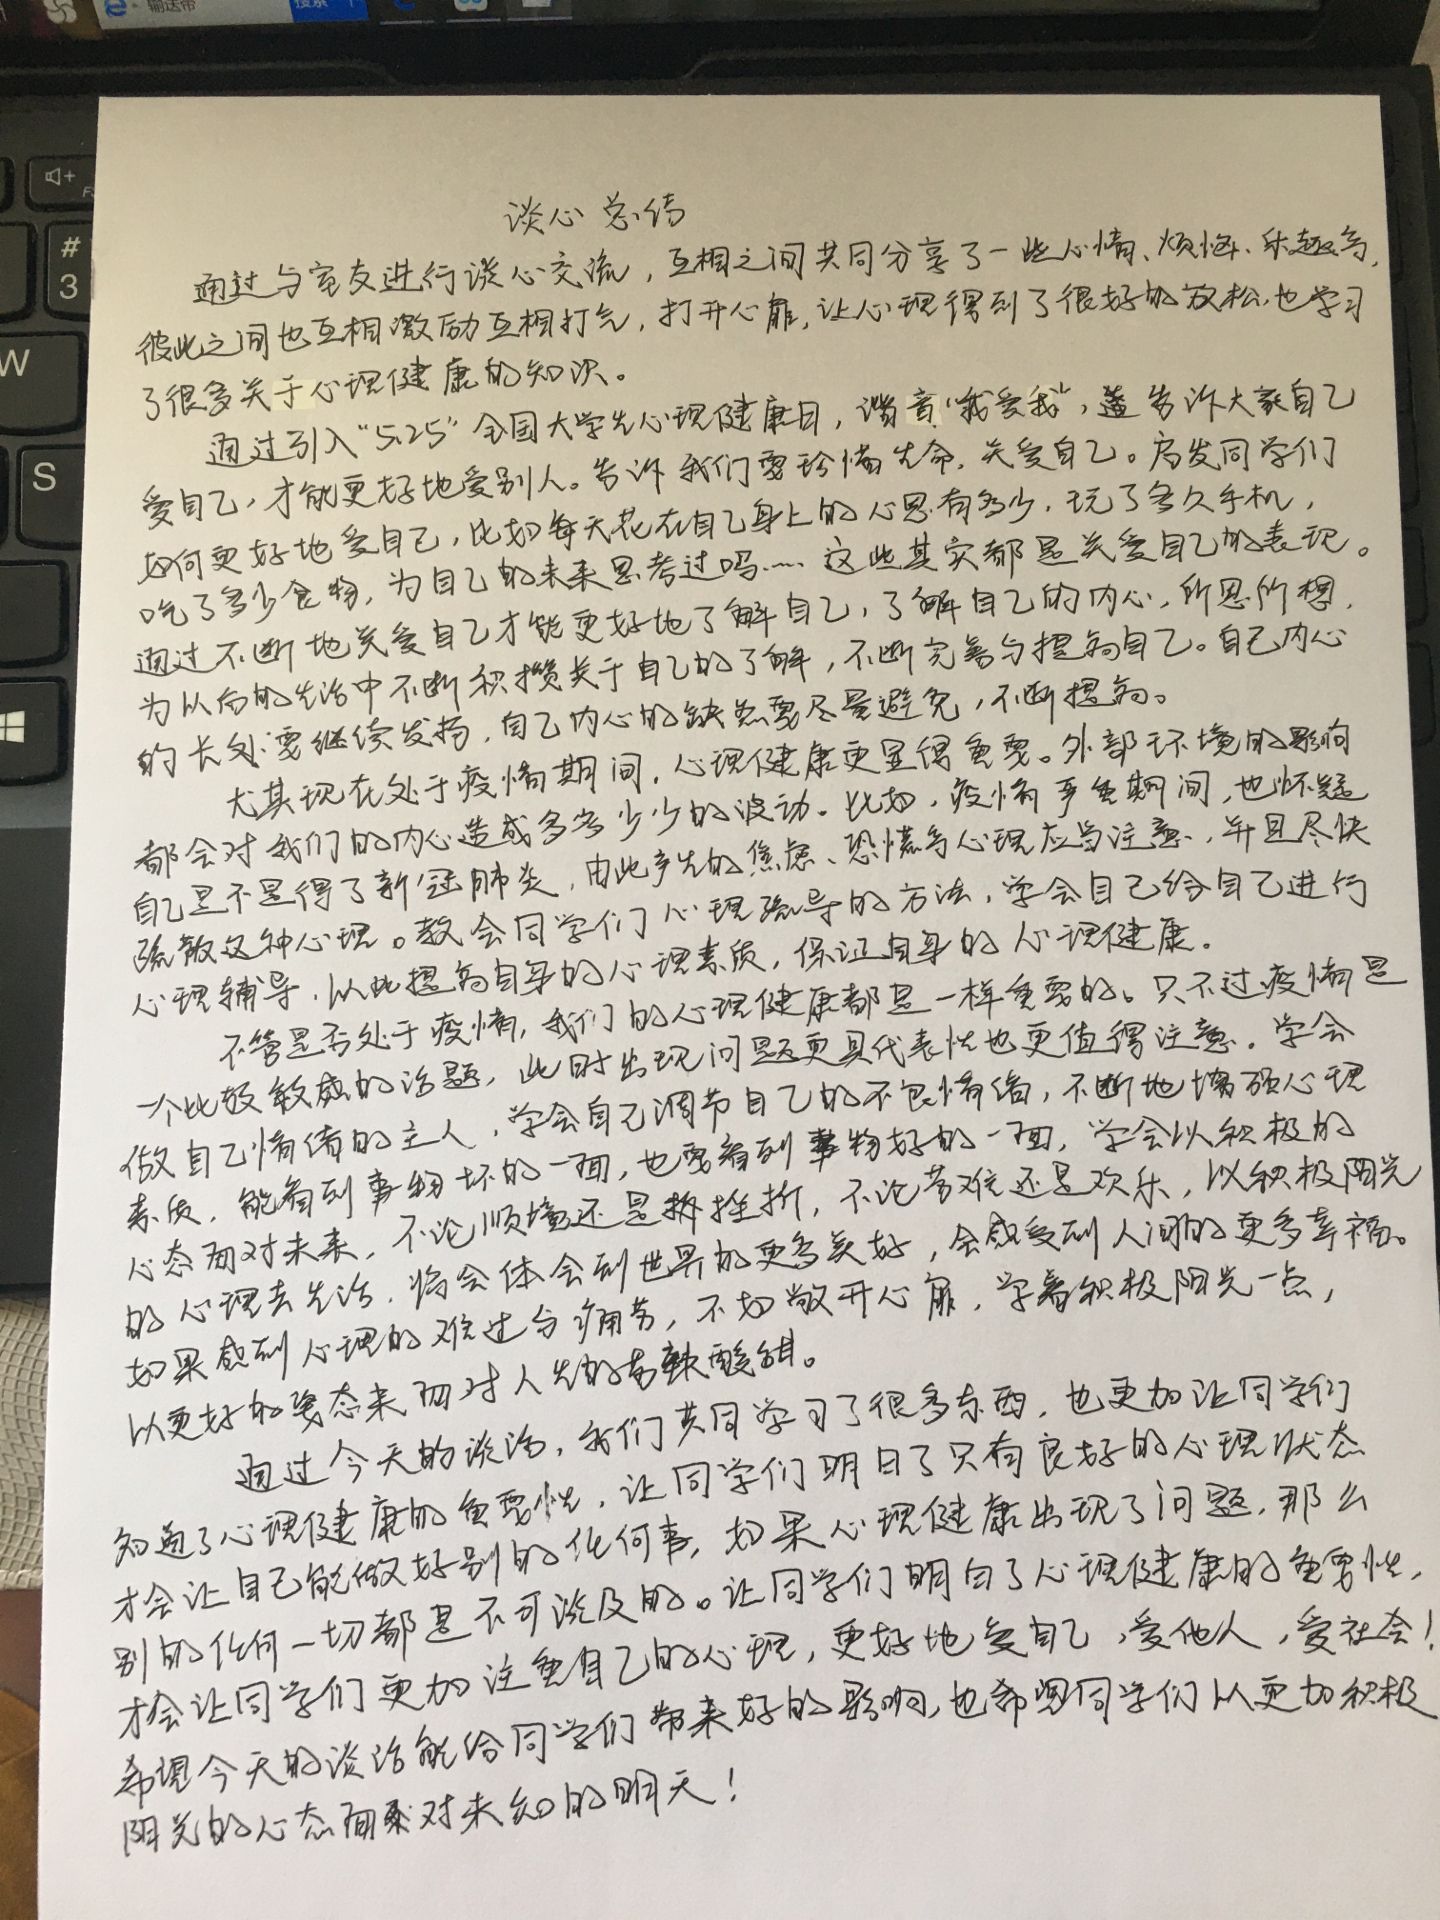 输送带
搜索
#
3
W
S
谈心总结
通过与室友进行谈心交流，互相之间共同分享了一些心情、烦恼、乐趣等，
彼此之间也互相激励互相打气，打开心扉，让心理得到了很好的放松，也学习
了很多关于心理健康的知识。
通过引入“5.25”全国大学生心理健康日，谐音“我爱我”，告诉大家自己
爱自己，才能更好地爱别人。告诉我们要珍惜生命，关爱自己。启发同学们
如何更好地爱自己，比如每天花在自己身上的心思有多少，玩了多久手机，
吃了多少食物，为自己的未来思考过吗……这些其实都是关爱自己的表现。
通过不断地关爱自己才能更好地了解自己，了解自己的内心，所思所想，
为以后的生活中不断积攒关于自己的了解，不断完善与提高自己。自己内心
的长处要继续发扬，自己内心的缺点要尽量避免，不断提高。
尤其现在处于疫情期间，心理健康更显得重要。外部环境的影响
都会对我们的内心造成多多少少的波动。比如，疫情严重期间，也怀疑
自己是不是得了新冠肺炎，由此产生的焦虑、恐慌等心理应当注意，并且尽快
疏散这种心理。教会同学们心理疏导的方法，学会自己给自己进行
心理辅导，以此提高自身的心理素质，保证自身的心理健康。
不管是否处于疫情，我们的心理健康都是一样重要的。只不过疫情是
一个比较敏感的话题，此时出现问题更具代表性也更值得注意。学会
做自己情绪的主人，学会自己调节自己的不良情绪，不断地增强心理
素质，能看到事物坏的一面，也要看到事物好的一面，学会以积极的
心态面对未来，不论顺境还是挫折，不论苦难还是欢乐，以积极阳光
的心理去生活，将会体会到世界的更多美好，会感受到人间的更多幸福。
如果感到心理的难过与痛苦，不如敞开心扉，学着积极阳光一点，
以更好的姿态来面对人生的苦辣酸甜。
通过今天的谈话，我们共同学习了很多东西，也更加让同学们
知道了心理健康的重要性，让同学们明白了只有良好的心理状态
才会让自己能做好别的任何事，如果心理健康出现了问题，那么
别的任何一切都是不可谈及的。让同学们明白了心理健康的重要性，
才会让同学们更加注重自己的心理，更好地爱自己，爱他人，爱社会！
希望今天的谈话能给同学们带来好的影响，也希望同学们以更加积极
阳光的心态面对未知的明天！